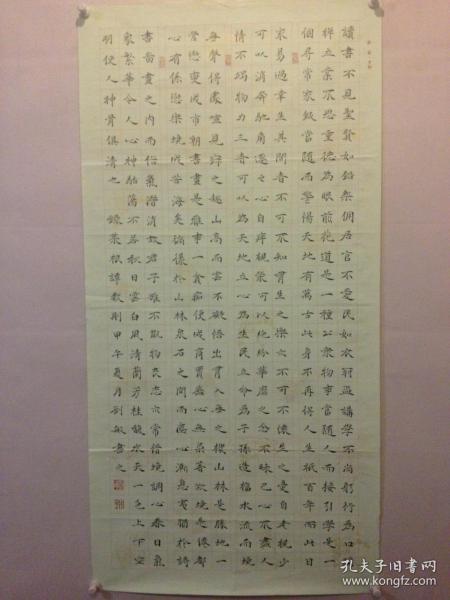 讀書不見聖賢如鉛槧傭居官不愛民如衣冠盜講學不尚躬行為口
禪立業不思種德為眼前花道是一種公眾物事當隨人而接引學是一
個尋常家飯當隨而警惕天地有萬古此身不再得人生祇百年而此日
最易過幸生其間者不可不知有生之樂亦不可不懷生之憂自老視少
可以消奔馳角逐之心自瘁視榮可以絕紛華靡之念不昧己心不盡人
情不竭物力三者可以為天地立心為生民立命為子孫造福水流而境
無聲得處喧見寂之趣山高而雲不礙悟出有入無之機山林是勝地一
營戀變成市朝書畫是雅事一貪癡便成商賈心無染著欲境是僊都
心有係戀樂境成苦海矣徜徉於山林泉石之間而塵心漸息夷猶於詩
書圖畫之內而俗氣潛消故君子雖不玩物喪志亦常借境調心春日氣
象繁華令人心神駘蕩不若秋日雲白風清蘭芳桂馥水天一色上下空
明使人神骨俱清也 錄菜根譚數則甲午夏月劉敏書之
孔夫子旧书网